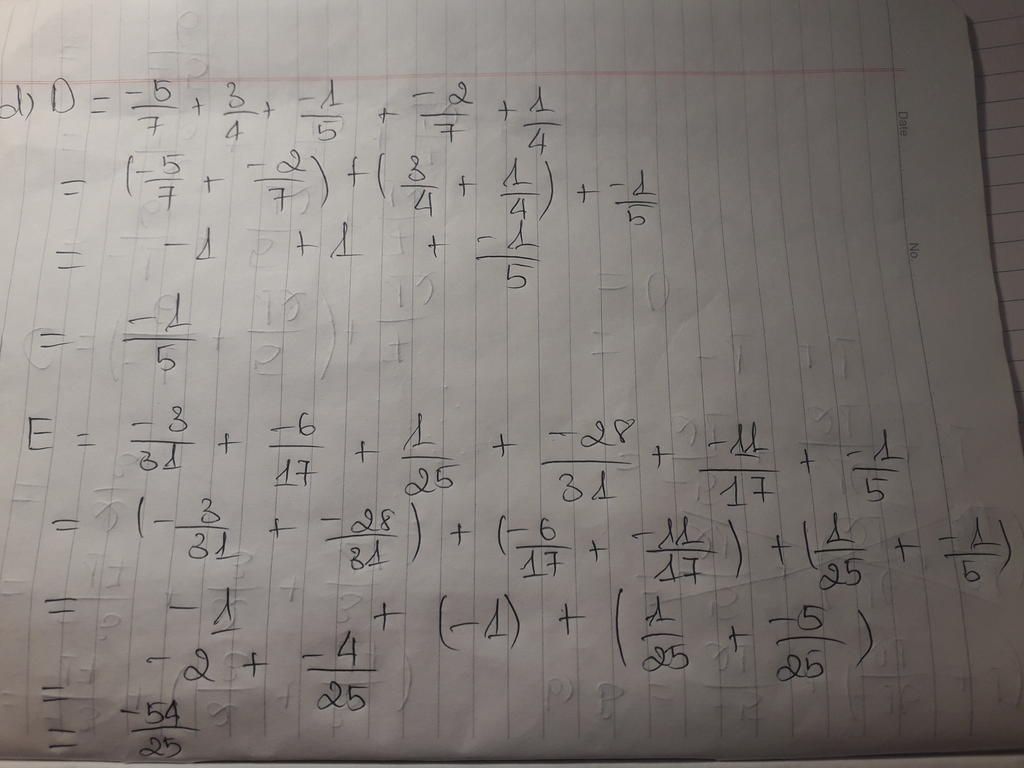 d) D = -5/7 + 3/4 + -1/5 + -2/7 + 1/4
= (-5/7 + -2/7) + (3/4 + 1/4) + -1/5
= -1 + 1 + -1/5
= -1/5
E = -3/31 + -6/17 + 1/25 + -28/31 + -11/17 + -1/5
= (-3/31 + -28/31) + (-6/17 + -11/17) + (1/25 + -1/5)
= -1 + (-1) + (1/25 + -5/25)
= -2 + -4/25
= -54/25
Date
No.